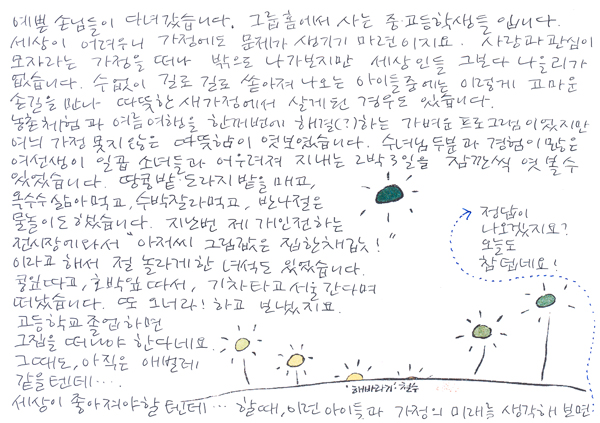 예쁜 손님들이 다녀갔습니다. 그룹홈에서 사는 중·고등학생들입니다.
세상이 어려우니 가정에도 문제가 생기기 마련이지요. 사랑과 관심이
모자라는 가정을 떠나 밖으로 나가보지만 세상인들 그보다 나을리가
없습니다. 수없이 길로 길로 쏟아져 나오는 아이들 중에는 이렇게 고마운
손길을 만나 따뜻한 새가정에서 살게된 경우도 있습니다.
농촌체험과 여름여행을 한꺼번에 해결(?)하는 가벼운 프로그램이었지만
여늬 가정 못지않은 따뜻함이 엿보였습니다. 수녀님 두분과 경험이 많은
여선생이 일곱 소녀들과 어우러져 지내는 2박3일을 잠깐씩 엿볼수
있었습니다. 땅콩밭·도라지밭을 매고,
옥수수 삶아먹고, 수박잘라먹고, 반나절은
물놀이도 하였습니다. 지난번 제 개인전하는
전시장에 와서 "아저씨 그림값은 집한채값!"
이라고 해서 절 놀라게한 녀석도 있었습니다.
콩잎따고, 호박잎 따서, 기차타고 서울간다며
떠났습니다. 또 오너라! 하고 보냈지요.
고등학교 졸업하면
그집을 떠나야 한다네요.
그때도, 아직은 애벌레
같을텐데….
세상이 좋아져야할 텐데… 할때, 이런 아이들과 가정의 미래를 생각해 보면
정답이
나오겠지요?
오늘도
참 덥네요!
해바라기: 철수